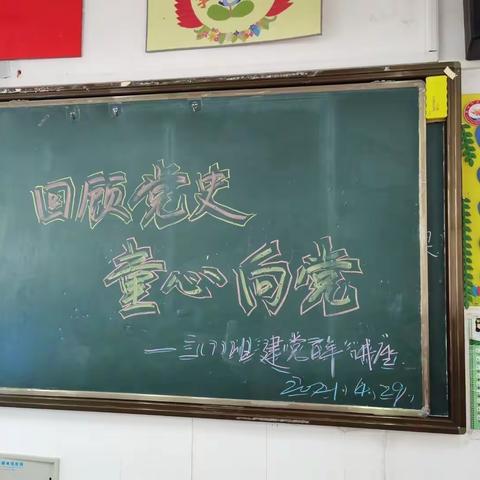 回顾党史
童心向党
——三(7)班“建党百年”讲座
2021.4.29.